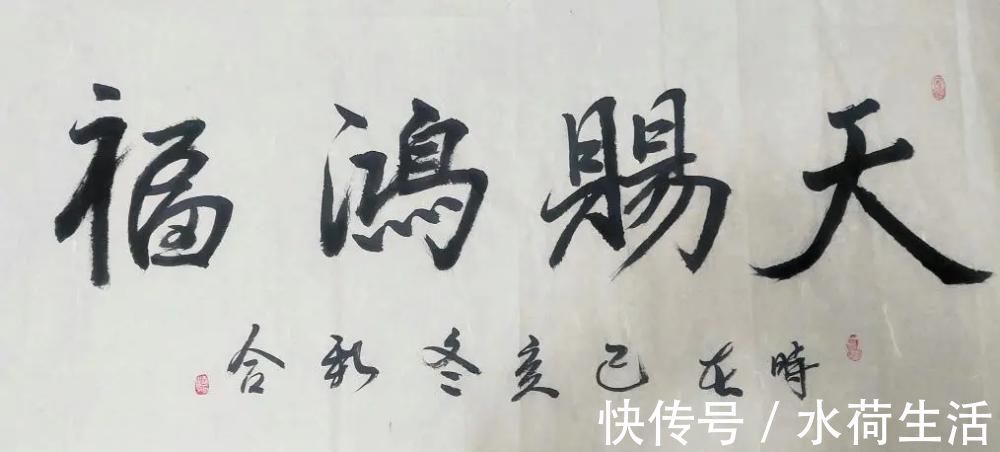 天賜鴻福
時在己亥冬新合
快传号/水荷生活